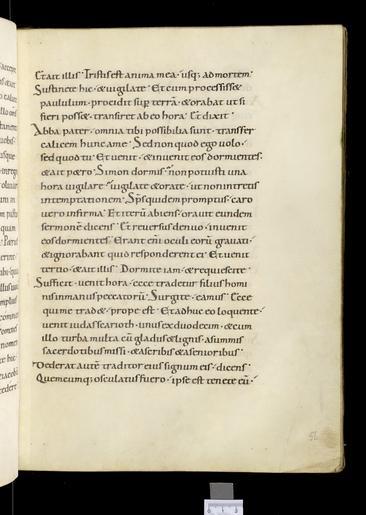 Et ait illis · Tristis est anima mea · usq; ad mortem ·
Sustinete hic · & vigilate · Et cum processisset
paululum · procidit sup terrā · & orabat ut si
fieri posset · transiret ab eo hora · Et dixit ·
Abba pater · omnia tibi possibilia sunt · transfer
calicem hunc a me · Sed non quod ego volo ·
sed quod tu · Et venit · & invenit eos dormientes ·
& ait p&ro · Simon dormis · non potuisti una
hora vigilare · vigilate & orate · ut non intretis
in temptationem · Sp̄s quidem promptus · caro
vero infirma · Et iterū abiens · oravit eundem
sermonē dicens · Et reversus denuo · invenit
eos dormientes · Erant enī oculi eorū gravati ·
& ignorabant quid responderent ei · Et venit
tertio · & ait illis · Dormite iam · & requiescite ·
Sufficit · venit hora · ecce tradetur filius homi
nis in manus peccatorū · Surgite · eamus · Ecce
qui me trad& · prope est · Et adhuc eo loquente ·
venit iudas scarioth · unus ex duodecim · & cum
illo turba multa cū gladiis & lignis · a summis
sacerdotibus missi · & a scribis & a senioribus ·
Dederat autē traditor eius signum eis · dicens ·
Quemcumq; osculatus fuero · ipse est tenete eū ·